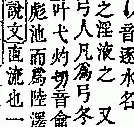 以音逐水名
之淫液之 又
弓人凡爲弓冬
叶弋灼切音龠
彪池而爲陸澤
說文直流也一